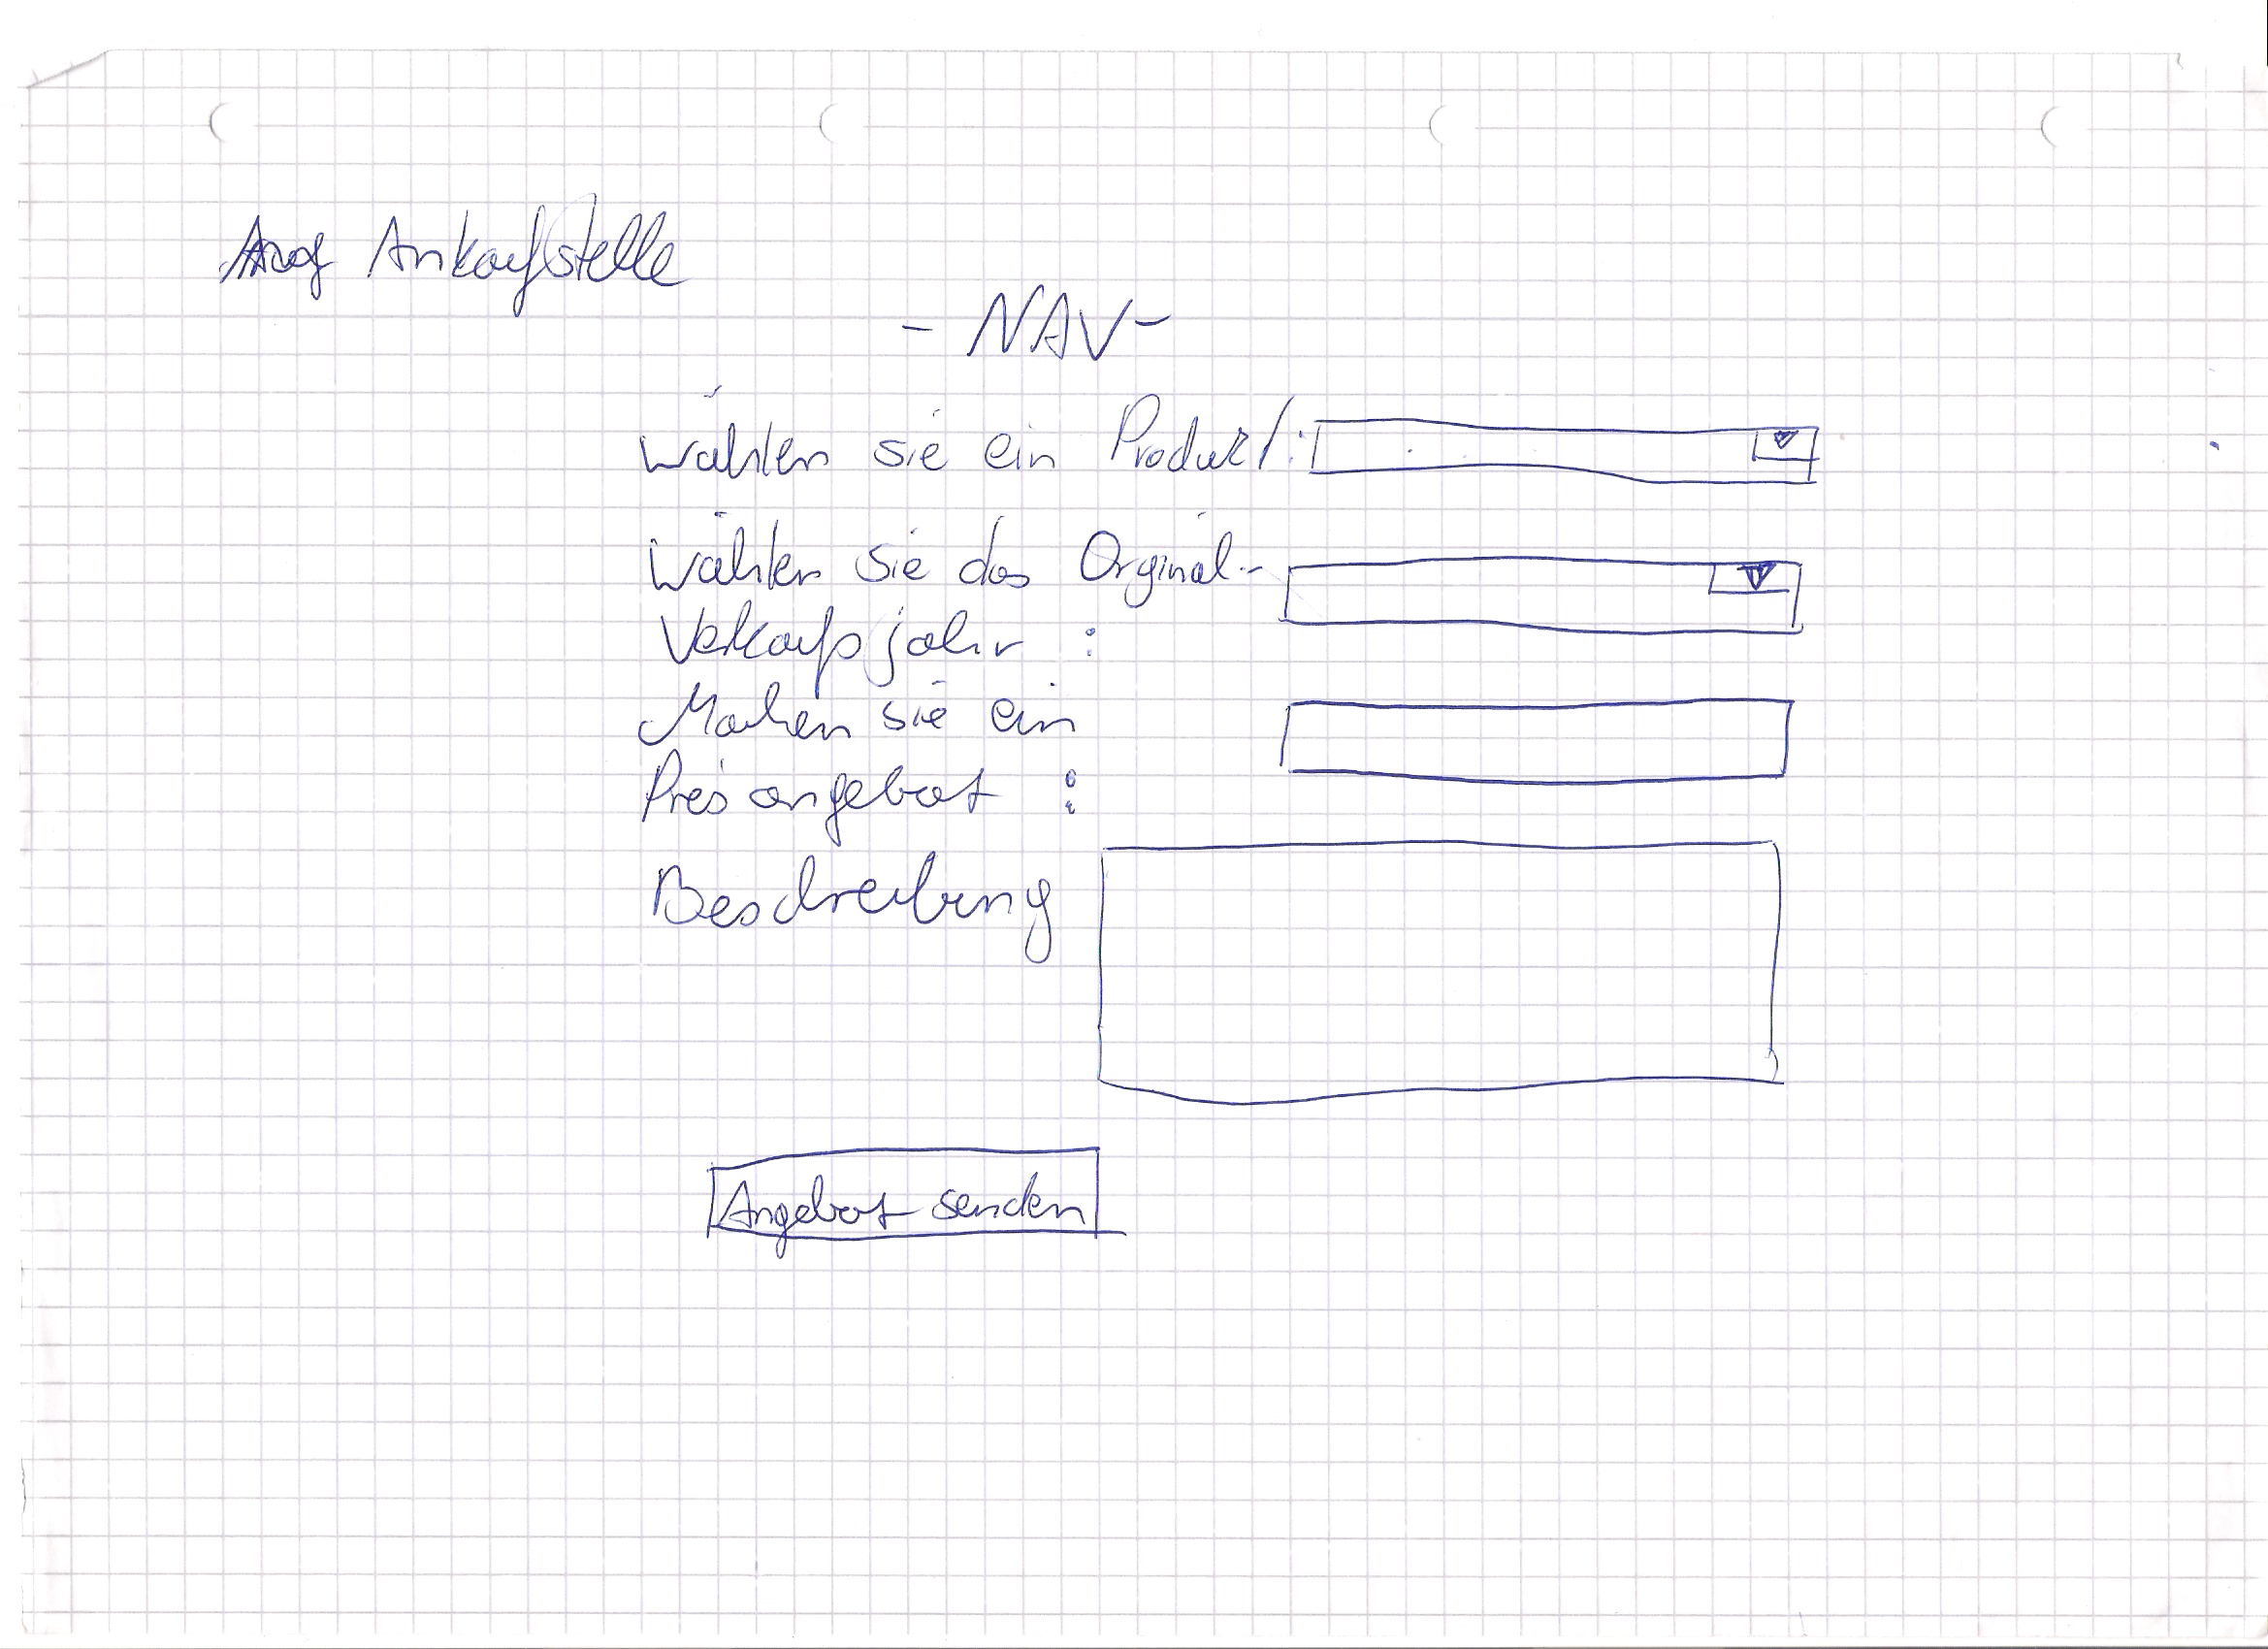 Ankaufstelle
- NAV -
Wählen sie ein Produkt:
Wählen sie das Orginal-
Verkaufsjahr :
Machen sie ein
Preisangebot :
Beschreibung
Angebot senden